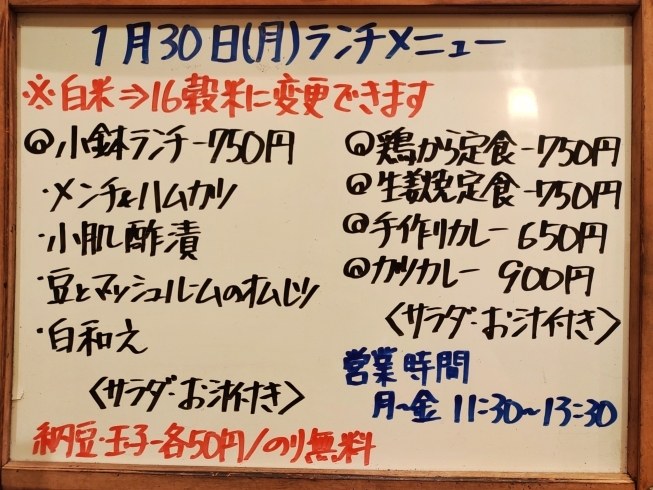 1月30日(月)ランチメニュー
※白米⇒16穀米に変更できます
◎小鉢ランチ-750円
・メンチ&ハムカツ
・小肌酢漬
・豆とマッシュルームのオムレツ
・白和え
〈サラダ・お汁付き〉
納豆・玉子-各50円/のり無料
◎鶏から定食-750円
◎生姜焼定食-750円
◎手作りカレー 650円
◎カツカレー 900円
〈サラダ・お汁付き〉
営業時間
月~金 11:30~13:30